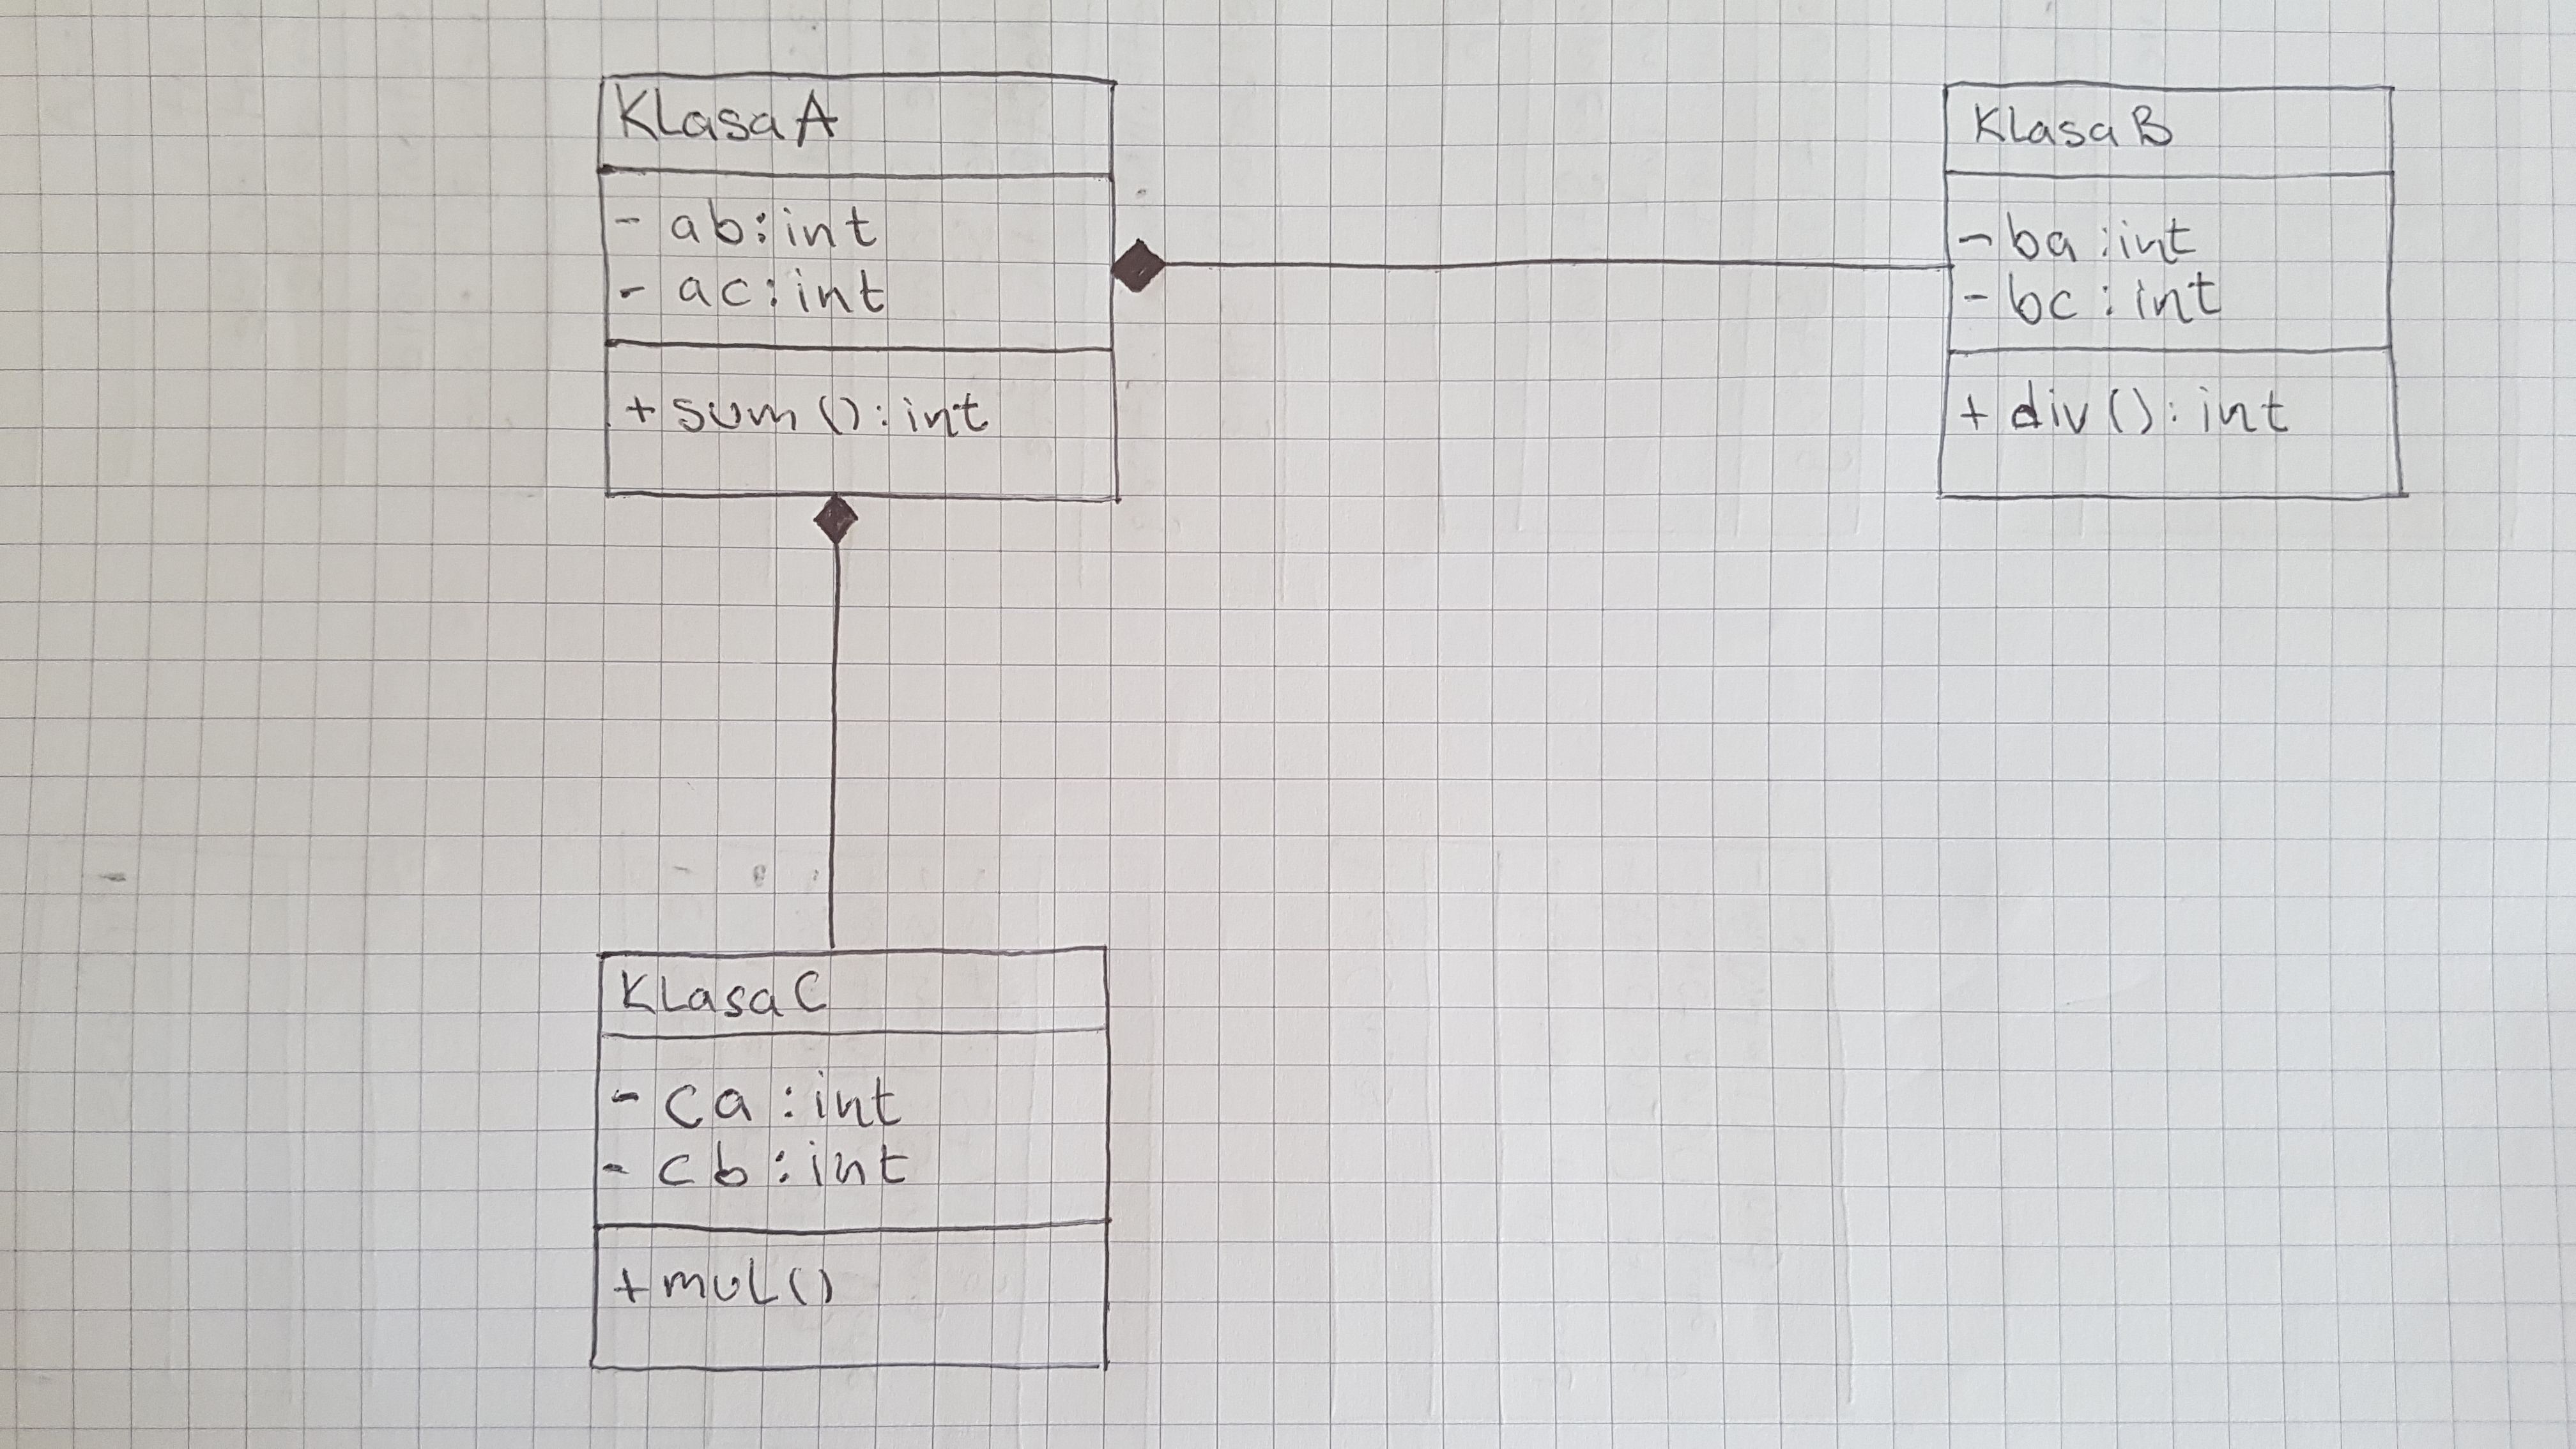 KlasaA
- ab: int
- ac: int
+ sum (): int
KlasaB
- ba : int
- bc : int
+ div () : int
KlasaC
- ca : int
- cb : int
+ mul ()